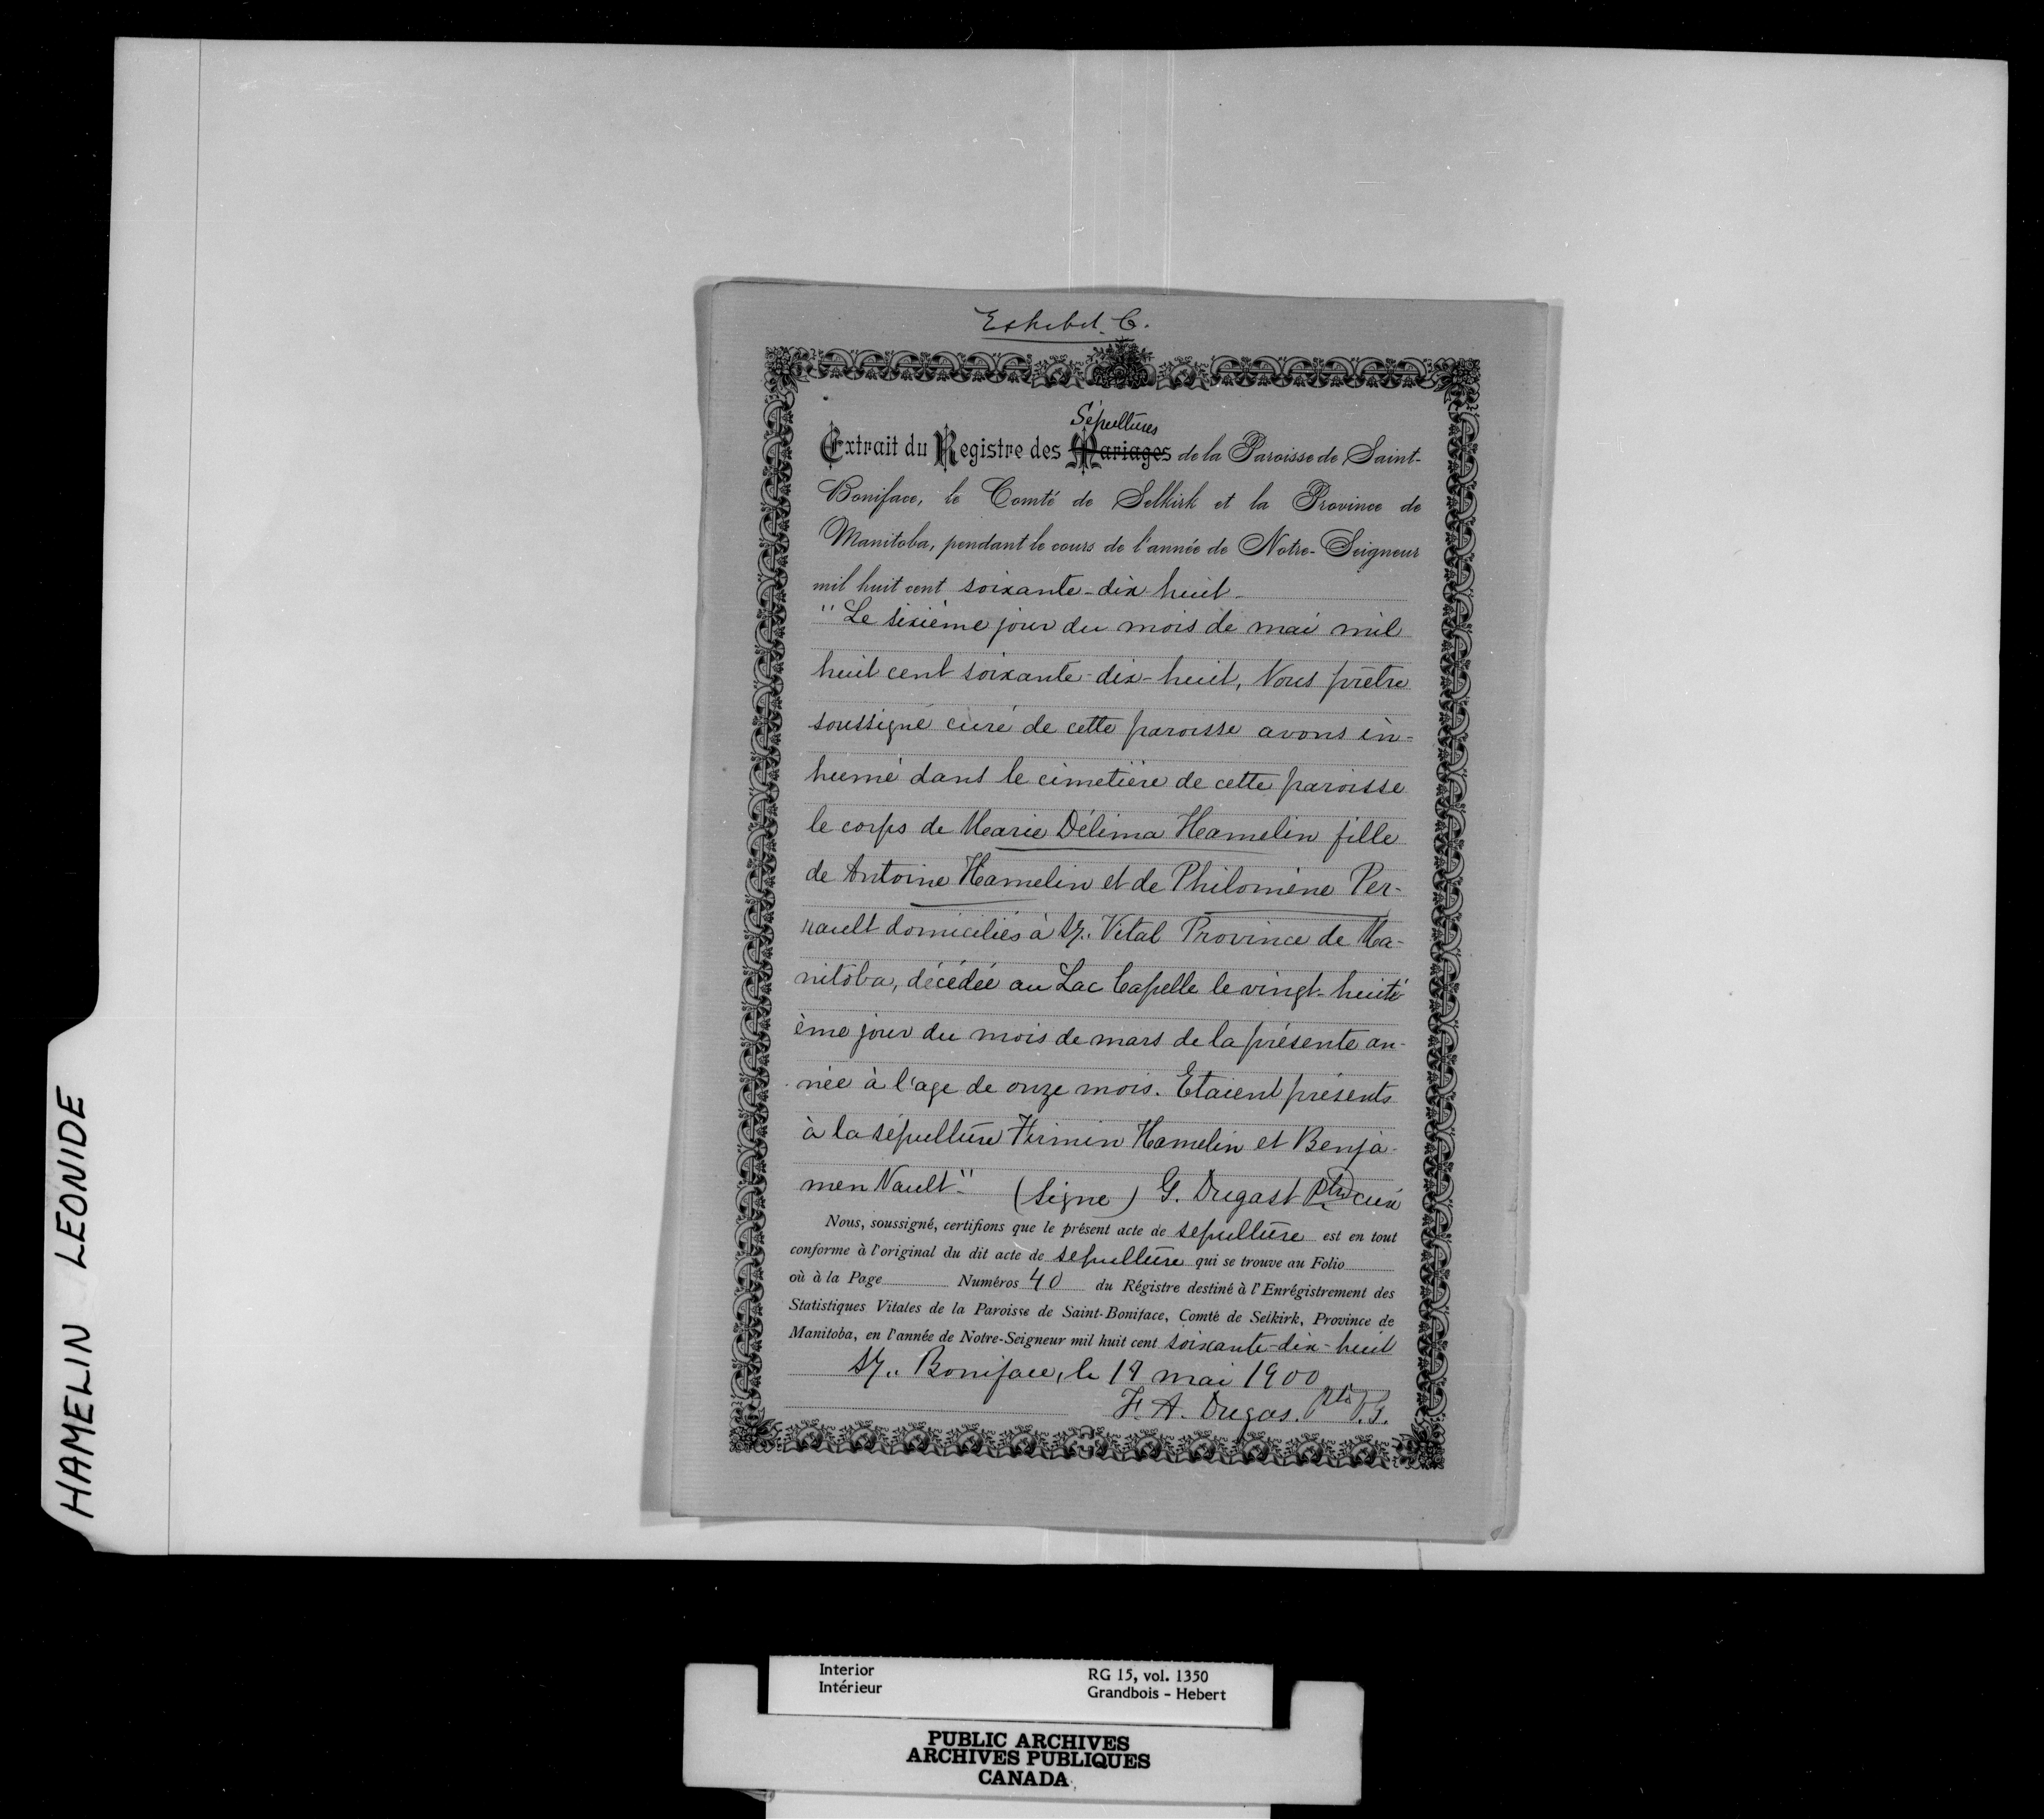 Exhibit C.
Sépultures
Extrait du Registre des Mariages de la Paroisse de Saint-
Boniface, le Comté de Selkirk et la Province de
Manitoba, pendant le cours de l'année de Notre-Seigneur
mil huit cent soixante-dix-huit-
"Le sixième jour du mois de mai mil
huit cent soixante-dix-huit, Nous prêtre
soussigné curé de cette paroisse avons in-
humé dans le cimetière de cette paroisse
le corps de Marie Délima Hamelin fille
de Antoine Hamelin et de Philomène Per-
rault domiciliés à St. Vital Province de Ma-
nitoba, décédée au Lac Capelle le vingt-huiti-
ème jour du mois de mars de la présente an-
née à l'age de onze mois. Etaient présents
à la sépulture Firmin Hamelin et Benja-
men Nault" (Signé) G. Dugast ptre curé
Nous, soussigné, certifions que le présent acte de sepulture est en tout
conforme à l'original du dit acte de sepulture qui se trouve au Folio
où à la Page Numéros 40 du Régistre destiné à l'Enrégistrement des
Statistiques Vitales de la Paroisse de Saint-Boniface, Comté de Selkirk, Province de
Manitoba, en l'année de Notre-Seigneur mil huit cent soixante-dix-huit
St. Boniface, le 19 mai 1900
F. A. Dugas. Ptre V.G.
HAMELIN LEONIDE
Interior RG 15, vol. 1350
Intérieur Grandbois - Hebert
PUBLIC ARCHIVES
ARCHIVES PUBLIQUES
CANADA